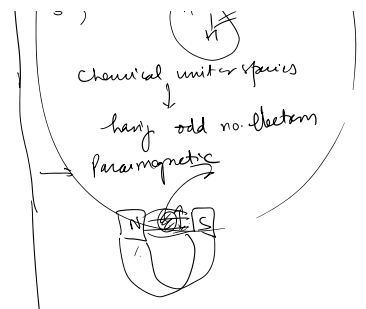 Chemical unit or species
having odd no. electrons
Paramagnetic
N S